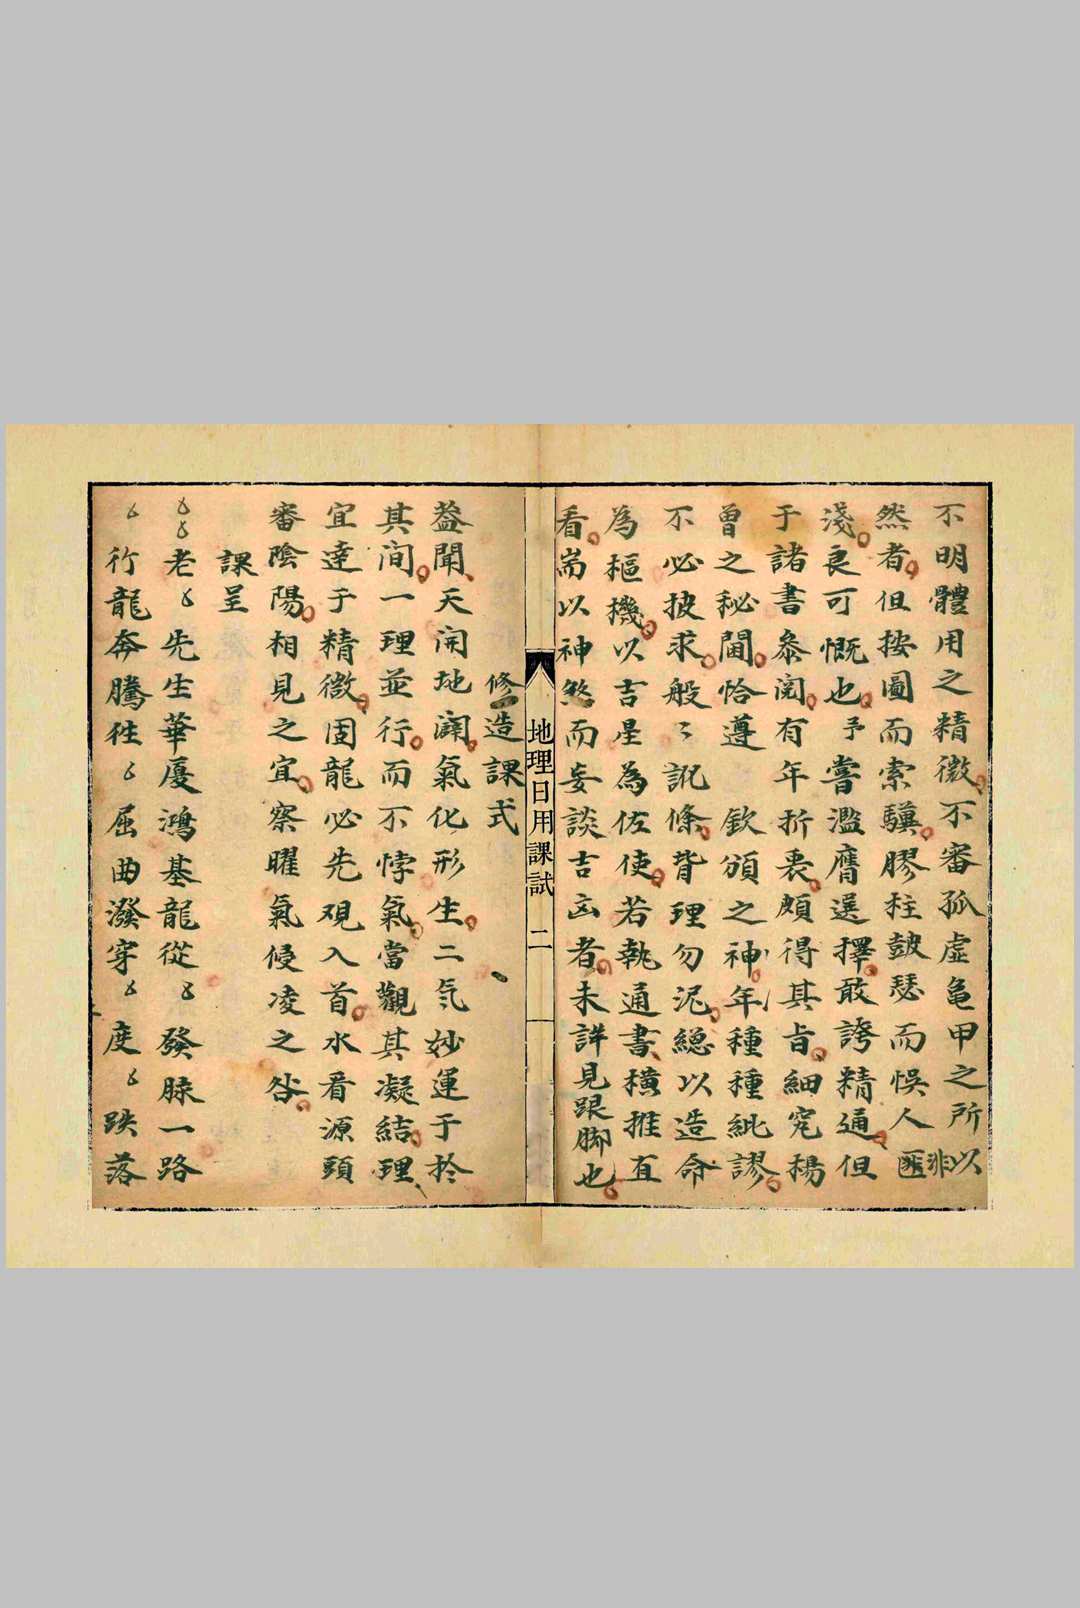 不明體用之精微不審孤虛龜甲之所以
然者但按圖而索驥膠柱鼓瑟而悞人匪非
淺良可慨也予嘗濫膺選擇敢誇精通但
于諸書叅閱有年折衷頗得其旨細究楊
曾之秘闡恰遵欽頒之神年種種紕謬
不必披求般〻訛條背理勿泥總以造命
為樞機以吉星為佐使若執通書橫推直
看耑以神煞而妄談吉凶者未詳見跟脚也
地理日用課試 二
修造課式
蓋聞天開地闢氣化形生二氣妙運于於
其间一理並行而不悖氣當觀其凝結理
宜達于精微固龍必先观入首水看源頭
審陰陽相見之宜察曜氣侵凌之咎
課呈
老 先生華廈鴻基龍從 發脉一路
行龍奔騰徃 屈曲潑穿 度 跌落